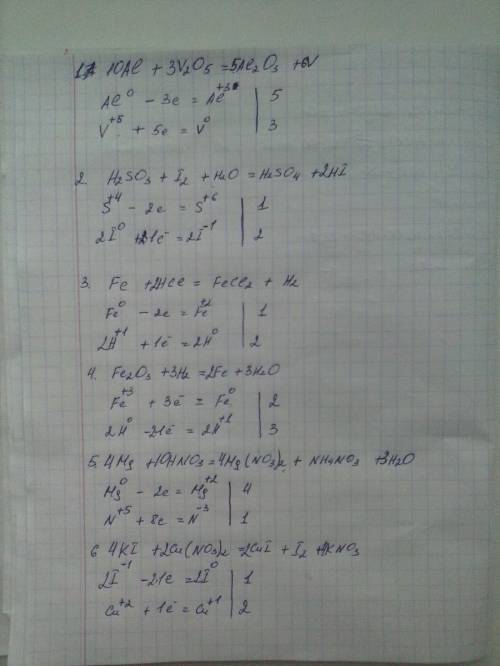 1. 10Al + 3V₂O₅ = 5Al₂O₃ + 6V
Al⁰ - 3e = Al⁺³ | 5
V⁺⁵ + 5e = V⁰ | 3
2. H₂SO₃ + I₂ + H₂O = H₂SO₄ + 2HI
S⁺⁴ - 2e = S⁺⁶ | 1
2I⁰ + 21ē = 2I⁻¹ | 2
3. Fe + 2HCl = FeCl₂ + H₂
Fe⁰ - 2e = Fe⁺² | 1
2H⁺¹ + 1ē = 2H⁰ | 2
4. Fe₂O₃ + 3H₂ = 2Fe + 3H₂O
Fe⁺³ + 3ē = Fe⁰ | 2
2H⁰ - 21ē = 2H⁺¹ | 3
5. 4Mg + 10HNO₃ = 4Mg(NO₃)₂ + NH₄NO₃ + 3H₂O
Mg⁰ - 2e = Mg⁺² | 4
N⁺⁵ + 8e = N⁻³ | 1
6 4KI + 2Cu(NO₃)₂ = 2CuI + I₂ + 4KNO₃
2I⁻¹ - 21e = 2I⁰ | 1
Cu⁺² + 1ē = Cu⁺¹ | 2